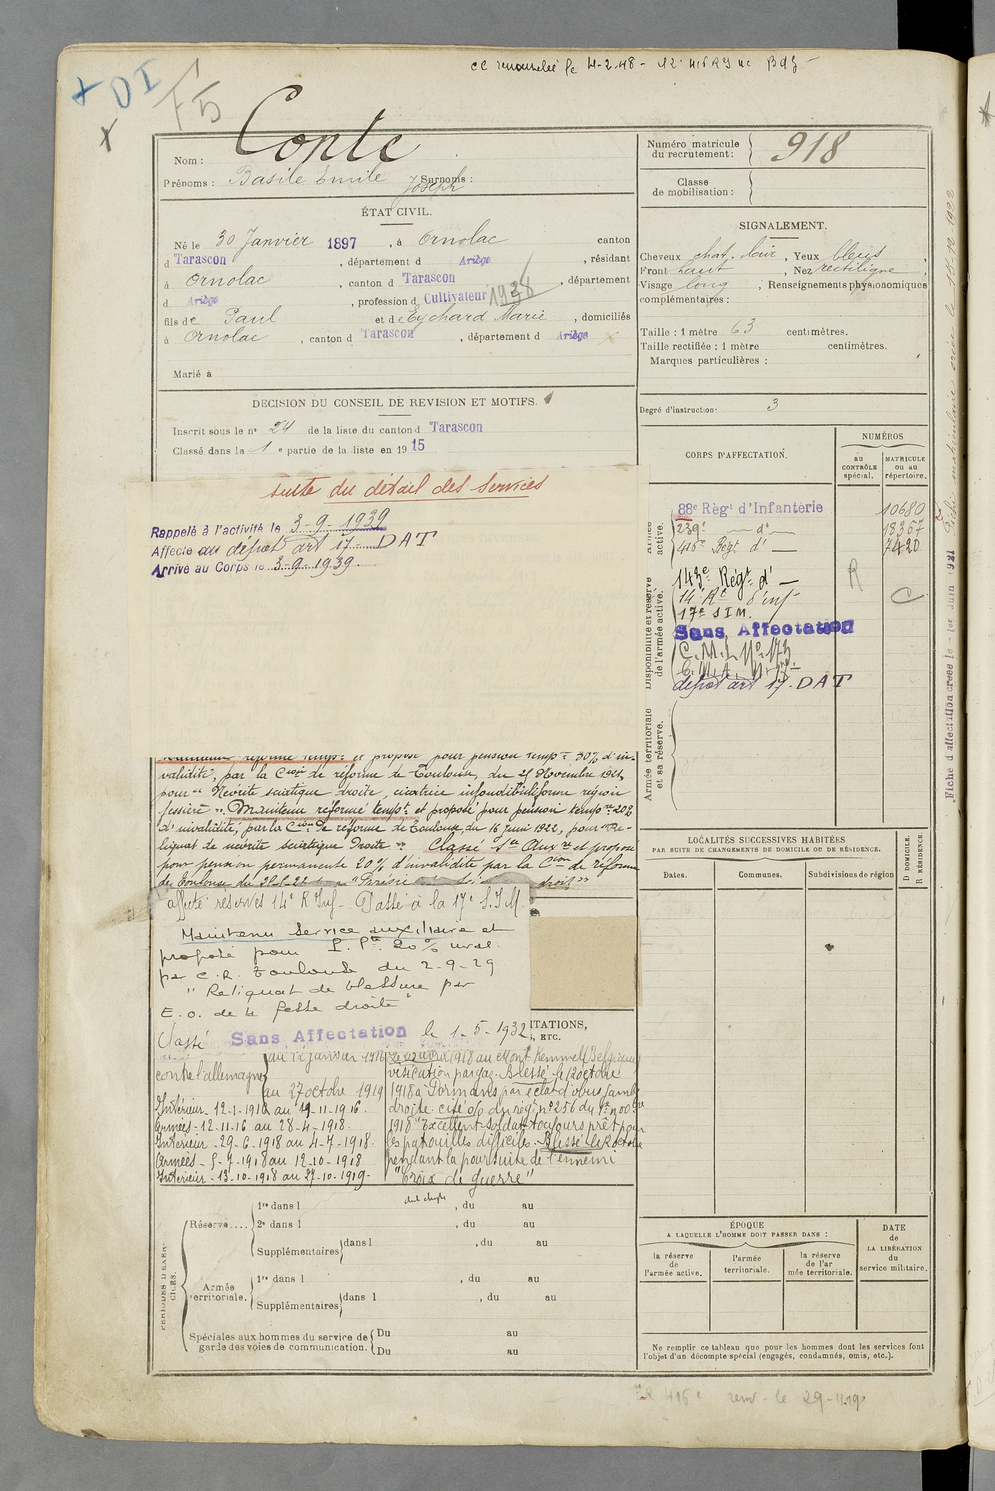 cc renouvelée le 4-2-48 -
+ DI
F5
Conte
Nom :
Prénoms : Basile Emile Joseph Surnoms :
Numéro matricule du recrutement : 918
Classe de mobilisation :
ÉTAT CIVIL.
Né le 30 Janvier 1897, à Ornolac canton
d Tarascon, département d Ariège, résidant
à Ornolac, canton d Tarascon, département
d Ariège, profession d Cultivateur 1938
fils de Paul et de Eychard Marie, domiciliés
à Ornolac, canton d Tarascon, département d Ariège
Marié à
SIGNALEMENT.
Cheveux chat. clair, Yeux bleus,
Front haut, Nez rectiligne
Visage long, Renseignements physionomiques
complémentaires :
Taille : 1 mètre 63 centimètres.
Taille rectifiée : 1 mètre centimètres.
Marques particulières :
Degré d'instruction : 3
DECISION DU CONSEIL DE REVISION ET MOTIFS.
Inscrit sous le n° 24 de la liste du canton d Tarascon
Classé dans la 1 e partie de la liste en 1915
suite du détail des services
Rappelé à l'activité le 3-9-1939
Affecté au dépôt art 17 DAT
Arrivé au Corps le 3-9-1939.
CORPS D'AFFECTATION.
NUMÉROS
au CONTRÔLE spécial.
MATRICULE ou au répertoire.
active.
88e Régt d'Infanterie 10680
239e — d° — 18367
416e Régt d° — 7420
Disponibilité et réserve de l'armée active.
143e Régt d° — R
14 Rt d'inf C
17e S.I.M.
Sans Affectation
C.M.I. N° 173
dépôt art 17. DAT
Armée territoriale et sa réserve.
Fiche d'affectation créée le 1er Juin 1921
et proposé pour pension tempre 30% d'in-
validité, par la Cion de réforme de Toulouse, du 25 Novembre 1921
pour "Névrite sciatique droite, cicatrice infundibuliforme région
fessière". Maintenu réformé tempre et proposé pour pension tempre 20%
d'invalidité, par la Cion de réforme de Toulouse du 16 Juin 1922, pour "Re-
liquat de névrite sciatique droite" Classé Sce Auxre et proposé
pour pension permanente 20% d'invalidité par la Cion de réforme
de Toulouse du
affecté réserves 14e R Inf - Passé à la 17e S.I.M
Maintenu service auxiliaire et
proposé pour P. Pte 20% inval.
par C.R. Toulouse du 2-9-29
"Reliquat de blessure par
E.O. de la fesse droite"
Classé Sans Affectation le 1-5-1932
ITATIONS,
, ETC.
contre l'allemagne
au 12 janvier 1916
au 27 octobre 1919
Intérieur - 12-1-1916 au 11-11-1916.
Armées - 12-11-16 au 28-4-1918.
Intérieur - 29-6-1918 au 4-7-1918.
Armées - 5-7-1918 au 12-10-1918
Intérieur - 13-10-1918 au 27-10-1919-
1918 au Mont Kemmel (Belgique)
vésication par gaz. Blessé le 12 octobre
1918 à Dormans par éclat d'obus jambe
droite. cité o/o du régt n° 256 du
1918 "Excellent soldat toujours prêt pour
les patrouilles difficiles. Blessé le 12 octobre
pendant la poursuite de l'ennemi
"Croix de guerre"
LOCALITÉS SUCCESSIVES HABITÉES
PAR SUITE DE CHANGEMENTS DE DOMICILE OU DE RÉSIDENCE.
D DOMICILE.
R RÉSIDENCE.
Dates.
Communes.
Subdivisions de région
PÉRIODES D'EXERCICES.
Réserve ....
1re dans l , du au
2e dans l , du au
Supplémentaires dans l , du au
Armée territoriale.
1re dans l , du au
Supplémentaires dans l , du au
Spéciales aux hommes du service de garde des voies de communication.
Du au
Du au
ÉPOQUE
A LAQUELLE L'HOMME DOIT PASSER DANS :
la réserve de l'armée active.
l'armée territoriale.
la réserve de l'ar mée territoriale.
DATE
de
LA LIBÉRATION
du
service militaire.
Ne remplir ce tableau que pour les hommes dont les services font
l'objet d'un décompte spécial (engagés, condamnés, omis, etc.).
416e renv - le 29-11-19